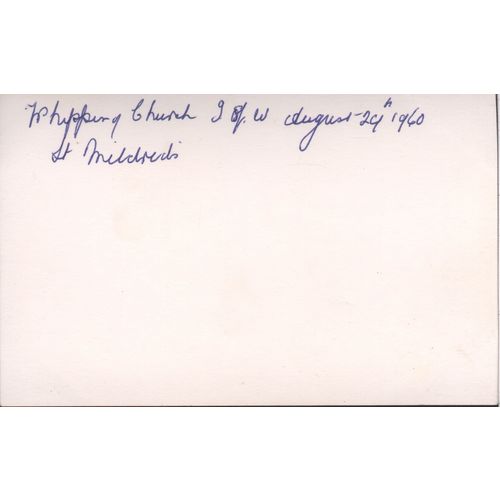 Whipping Church I of W August 29th 1960
St Mildreds